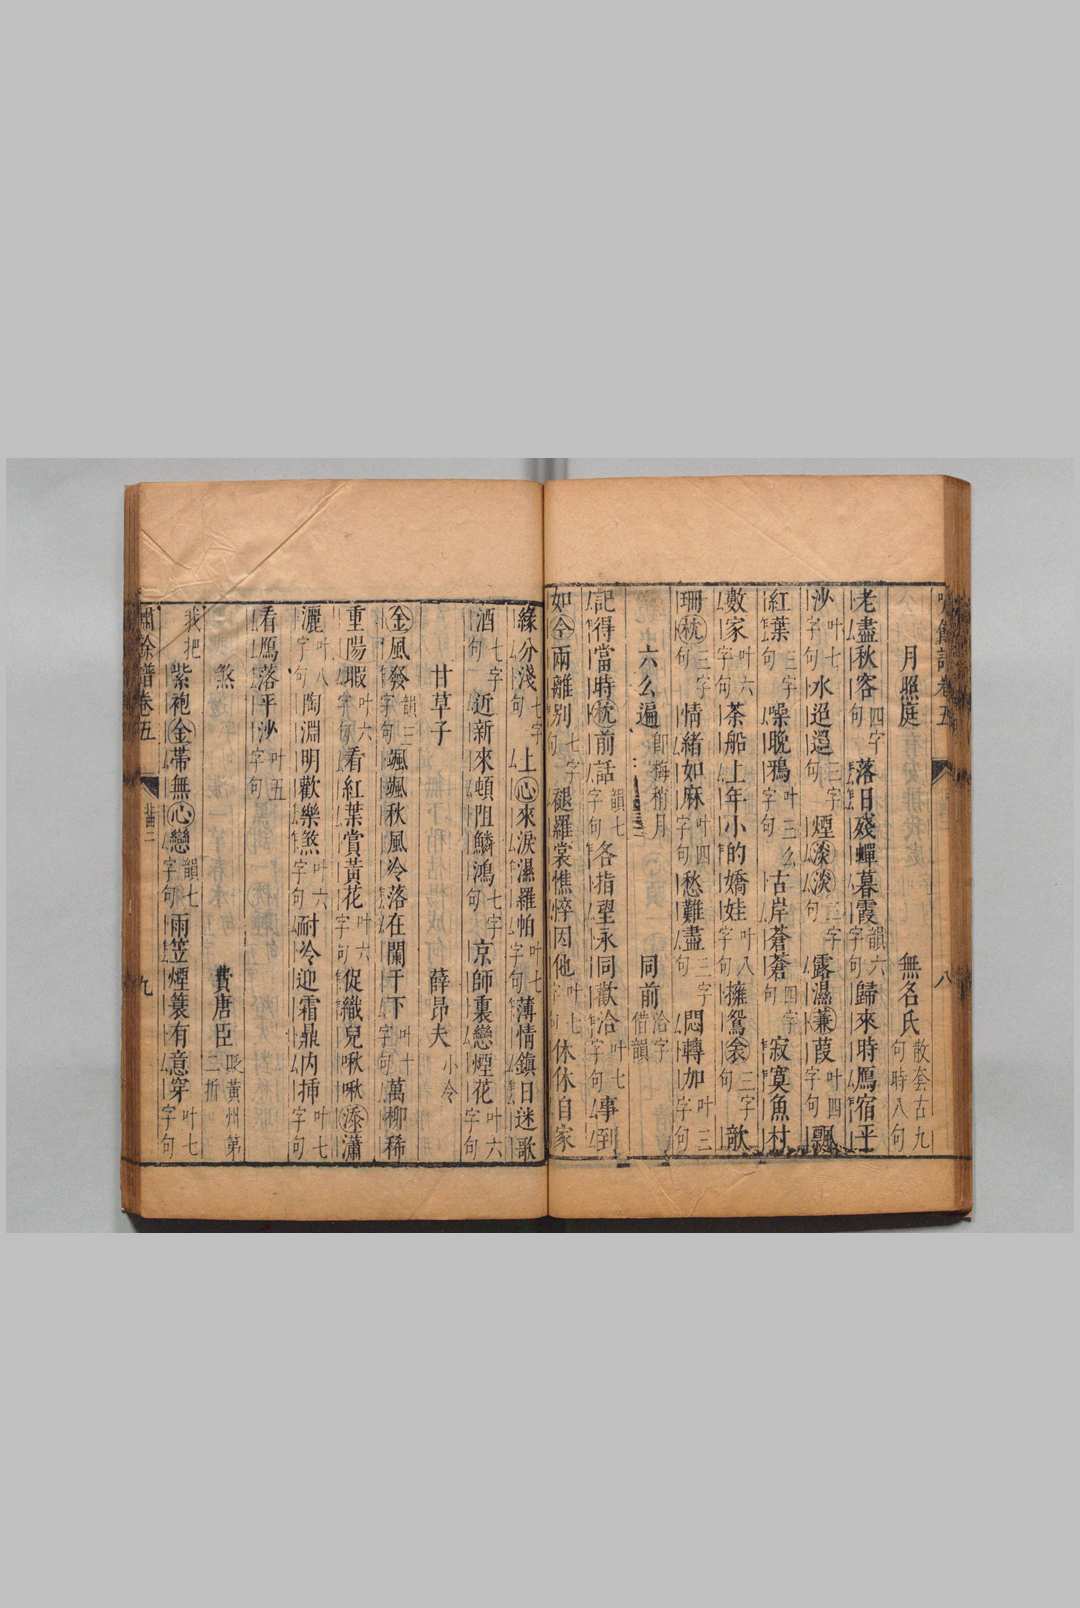 月照庭 無名氏 散套古九句時八句
老盡秋容 四字句 落日殘蟬暮霞 韻六字句 歸來時鴈宿平
沙 叶七字句 水迢迢 三字句 煙淡淡 三字句 露濕蒹葭 叶四字句 飄
紅葉 三字句 噪晚鴉 叶三字句 么 古岸蒼蒼 四字句 寂寞魚村
數家 叶六字句 茶船上年小的嬌娃 叶八字句 擁鴛衾 三字句 欹
珊枕 三字句 情緒如麻 叶四字句 愁難盡 三字句 悶轉加 叶三字句
六么遍 即梅稍月 同前 借韻
記得當時枕前話 韻七字句 各指望永同歡洽 洽字叶七字句 事到
如今兩離別 七字句 褪羅裳憔悴因他 叶七字句 休休自家
緣分淺 七字句 上心來淚濕羅帕 叶七字句 薄情鎭日迷歌
酒 七字句 近新來頓阻鱗鴻 七字句 京師裏戀煙花 叶六字句
甘草子 薛昂夫 小令
金風發 韻三字句 颯颯秋風冷落在闌干下 叶十字句 萬柳稀
重陽暇 叶六字句 看紅葉賞黃花 叶六字句 促織兒啾啾添瀟
灑 叶八字句 陶淵明歡樂煞 叶六字句 耐冷迎霜鼎內揷 叶七字句
看鴈落平沙 叶五字句
煞 費唐臣 貶黃州第三折
我把 紫袍金帶無心戀 韻七字句 雨笠煙簑有意穿 叶七字句
嘯餘譜卷五 九